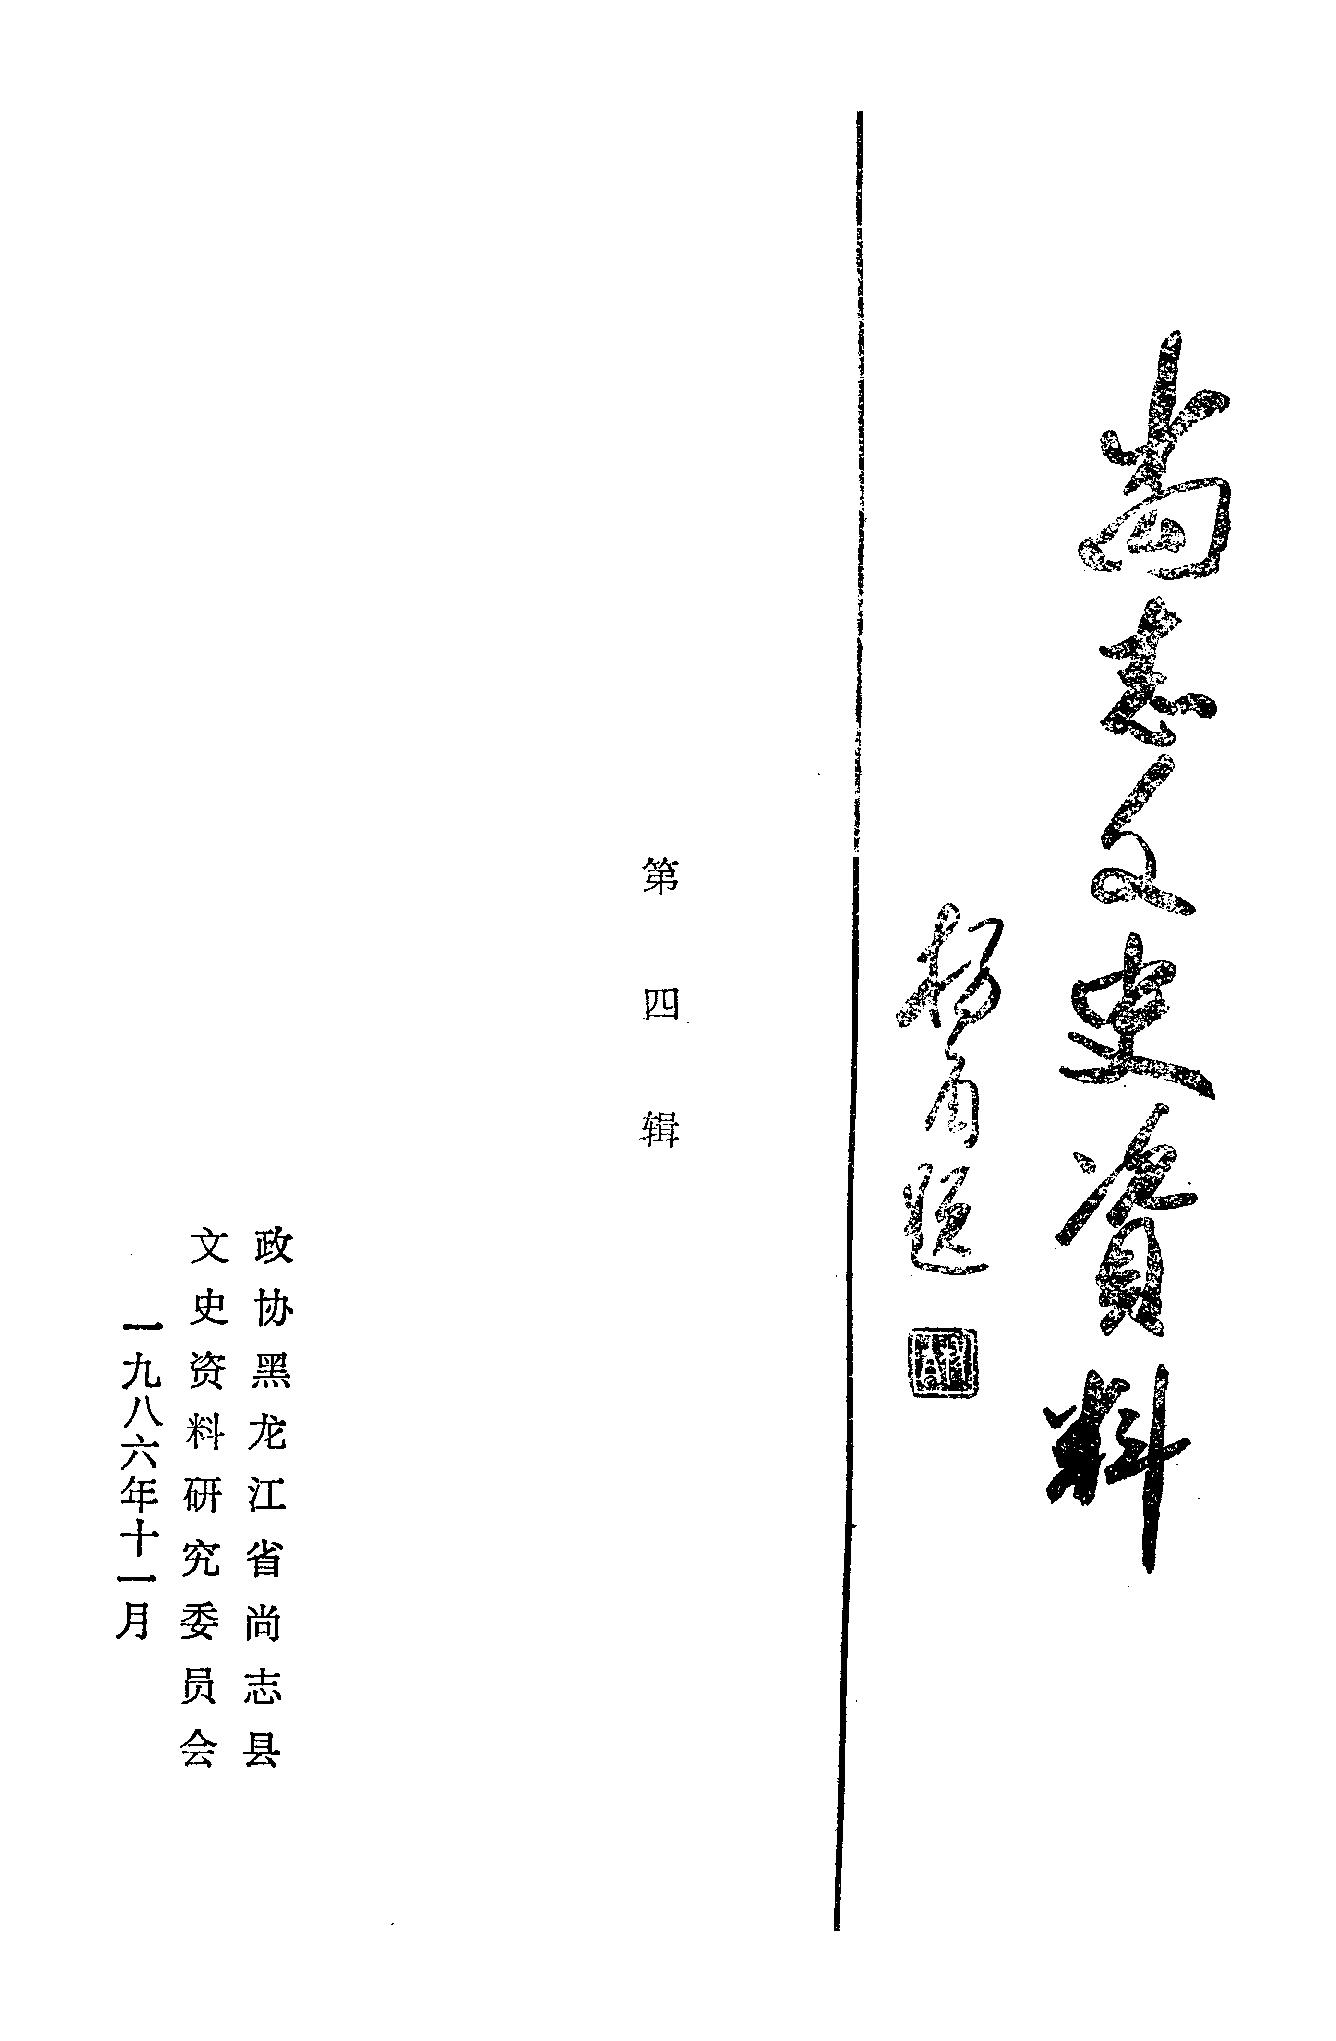 尚志文史資料
题
第四辑
政协黑龙江省尚志县
文史资料研究委员会
一九八六年十一月